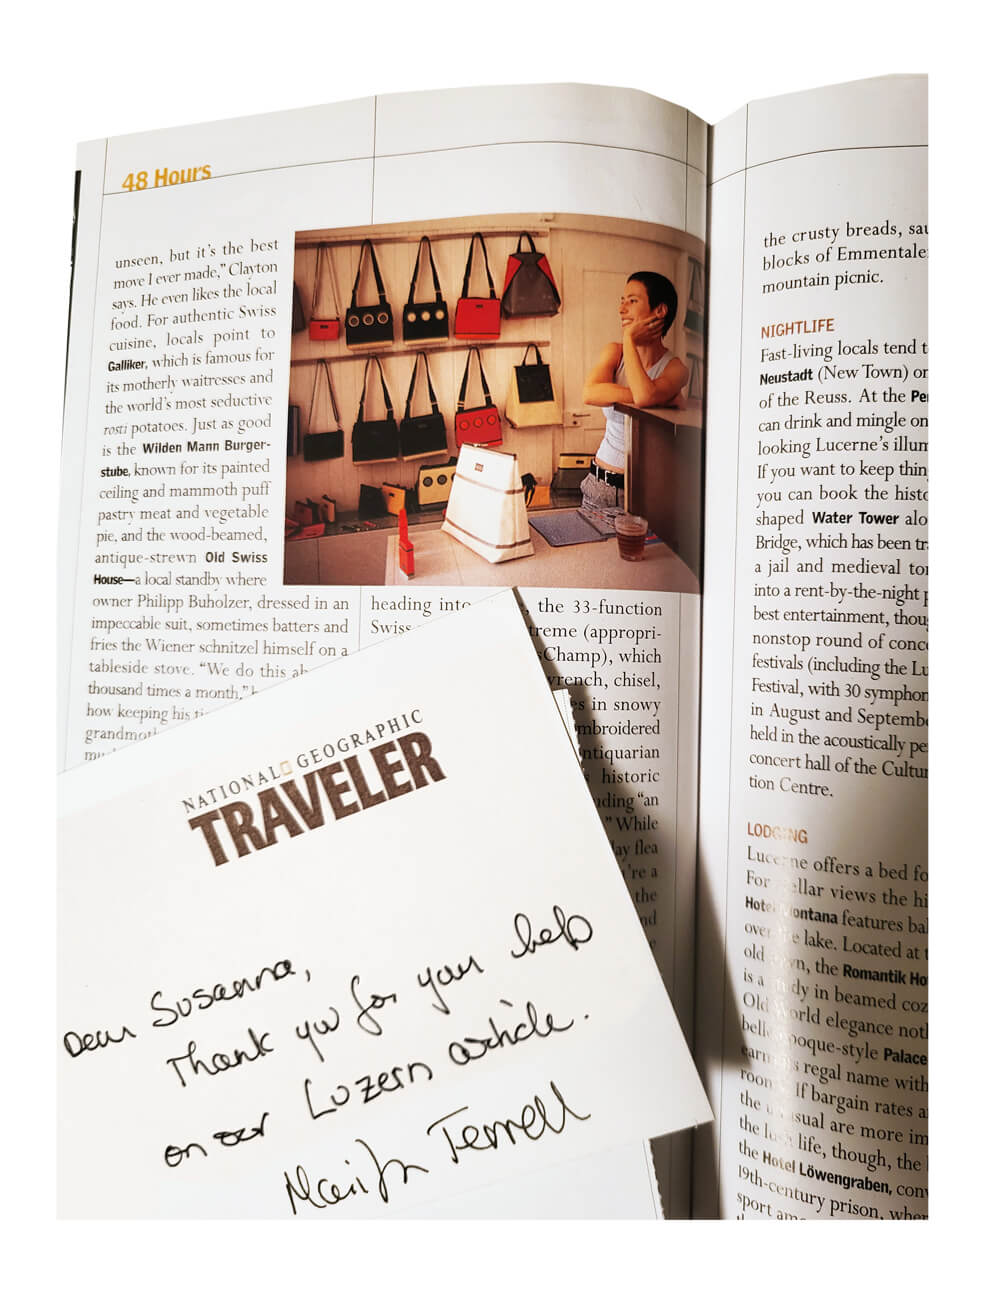 48 Hours
unseen, but it's the best
move I ever made," Clayton
says. He even likes the local
food. For authentic Swiss
cuisine, locals point to
Galliker, which is famous for
its motherly waitresses and
the world's most seductive
rosti potatoes. Just as good
is the Wilden Mann Burger-
stube, known for its painted
ceiling and mammoth puff
pastry meat and vegetable
pie, and the wood-beamed,
antique-strewn Old Swiss
House—a local standby where
owner Philipp Buholzer, dressed in an
impeccable suit, sometimes batters and
fries the Wiener schnitzel himself on a
tableside stove. "We do this
thousand times a month,"
how keeping his
heading into the 33-function
Swiss
(appropri-
sChamp), which
wrench, chisel,
in snowy
mbroidered
ntiquarian
historic
uding "an
" While
ay flea
're a
the
nd
the crusty breads, sau
blocks of Emmentale
mountain picnic.
NIGHTLIFE
Fast-living locals tend t
Neustadt (New Town) on
of the Reuss. At the Pe
can drink and mingle on
looking Lucerne's illum
If you want to keep thin
you can book the histo
shaped Water Tower alo
Bridge, which has been tr
a jail and medieval to
into a rent-by-the-night p
best entertainment, thou
nonstop round of conce
festivals (including the Lu
Festival, with 30 symphon
in August and Septembe
held in the acoustically pe
concert hall of the Cultur
tion Centre.
LODGING
Lucerne offers a bed fo
For stellar views the hi
Hotel Montana features bal
over the lake. Located at t
old town, the Romantik Ho
is a study in beamed coz
Old World elegance noth
belle epoque-style Palace
earns its regal name with
room. If bargain rates a
the unusual are more im
the lush life, though, the
the Hotel Löwengraben, conv
19th-century prison, wher
sport am
NATIONAL GEOGRAPHIC
TRAVELER
Dear Susanna,
Thank you for your help
on our Luzern article.
Marilyn Terrell